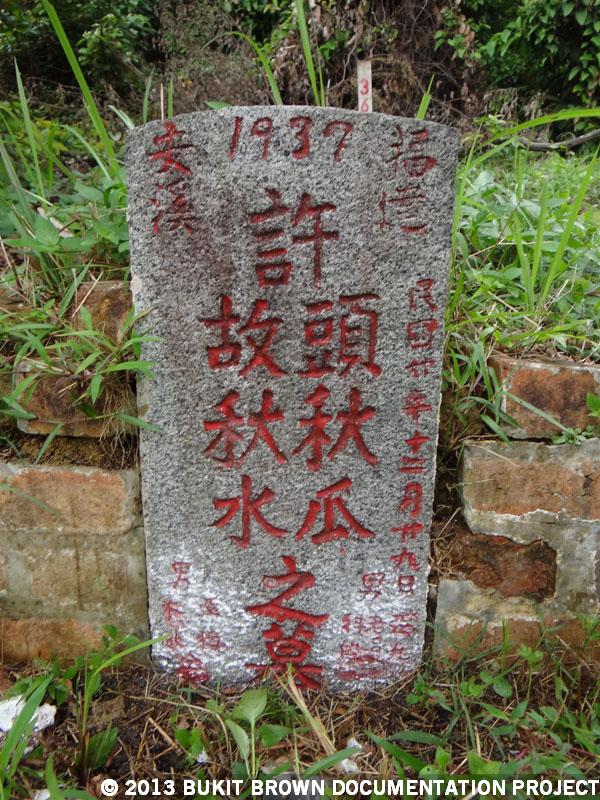 36
1937
福建
安溪
許
頭秋瓜
故秋水
之墓
年十二月廿九日
男
男
© 2013 BUKIT BROWN DOCUMENTATION PROJECT